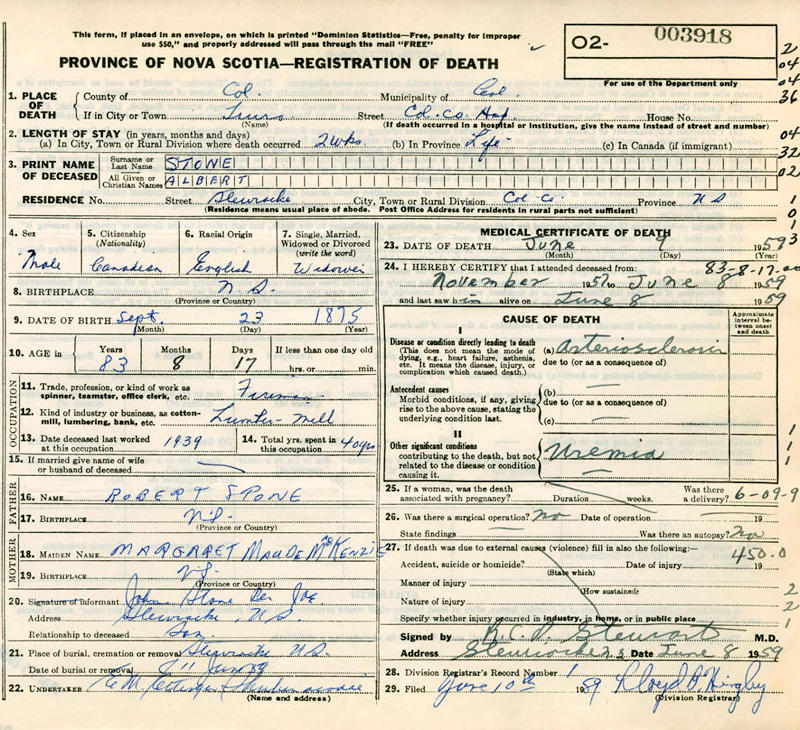 This form, if placed in an envelope, on which is printed "Dominion Statistics—Free, penalty for improper
use $50," and properly addressed will pass through the mail "FREE"
O2- 003918
PROVINCE OF NOVA SCOTIA—REGISTRATION OF DEATH
For use of the Department only
2
04
04
36
04
32
02
1
0
1
3
1. PLACE OF DEATH County of Col. Municipality of Col.
If in City or Town Truro Street Col. Co. Hosp. House No.
(Name) (If death occurred in a hospital or institution, give the name instead of street and number)
2. LENGTH OF STAY (in years, months and days)
(a) In City, Town or Rural Division where death occurred 2 wks (b) In Province Life (c) In Canada (if immigrant)
3. PRINT NAME OF DECEASED Surname or Last Name STONE
All Given or Christian Names ALBERT
RESIDENCE No. Street Stewiacke City, Town or Rural Division Col. Co. Province N S
(Residence means usual place of abode. Post Office Address for residents in rural parts not sufficient)
4. Sex Male
5. Citizenship (Nationality) Canadian
6. Racial Origin English
7. Single, Married, Widowed or Divorced (write the word) Widower
8. BIRTHPLACE N S.
(Province or Country)
9. DATE OF BIRTH Sept. 23 1875
(Month) (Day) (Year)
10. AGE in Years Months Days If less than one day old
83 8 17 hrs. or min.
OCCUPATION
11. Trade, profession, or kind of work as spinner, teamster, office clerk, etc. Fireman
12. Kind of industry or business, as cotton-mill, lumbering, bank, etc. Lumber Mill
13. Date deceased last worked at this occupation 1939
14. Total yrs. spent in this occupation 40 yrs
15. If married give name of wife or husband of deceased —
FATHER
16. NAME ROBERT STONE
17. BIRTHPLACE N.S.
(Province or Country)
MOTHER
18. MAIDEN NAME MARGARET MAUDE McKENZIE
19. BIRTHPLACE N.S.
(Province or Country)
20. Signature of informant John Stone Per
Address Stewiacke, N.S.
Relationship to deceased Son
21. Place of burial, cremation or removal Stewiacke N.S.
Date of burial or removal 11 June 59
22. UNDERTAKER
(Name and address)
MEDICAL CERTIFICATE OF DEATH
23. DATE OF DEATH June 9 1959
(Month) (Day) (Year)
24. I HEREBY CERTIFY that I attended deceased from: 83-8-17-00
November 1957 to June 8 1959
and last saw him alive on June 8 1959
CAUSE OF DEATH
Approximate interval between onset and death
I
Disease or condition directly leading to death
(This does not mean the mode of dying, e.g., heart failure, asthenia, etc. It means the disease, injury, or complication which caused death.)
(a) Arteriosclerosis
due to (or as a consequence of)
Antecedent causes
Morbid conditions, if any, giving rise to the above cause, stating the underlying condition last.
(b) —
due to (or as a consequence of)
(c) —
II
Other significant conditions
contributing to the death, but not related to the disease or condition causing it.
Uremia
1
1
1
25. If a woman, was the death associated with pregnancy? Duration weeks. Was there a delivery? 6-09-9
26. Was there a surgical operation? no Date of operation 19
State findings Was there an autopsy? no
27. If death was due to external causes (violence) fill in also the following:— 450.0
Accident, suicide or homicide? Date of injury 19
(State which)
Manner of injury 2
(How sustained)
Nature of injury 2
Specify whether injury occurred in industry, in home, or in public place 1
Signed by Stewart M.D.
Address Stewiacke N S Date June 8 1959
28. Division Registrar's Record Number 1
29. Filed June 10th 1959 Lloyd
(Division Registrar)